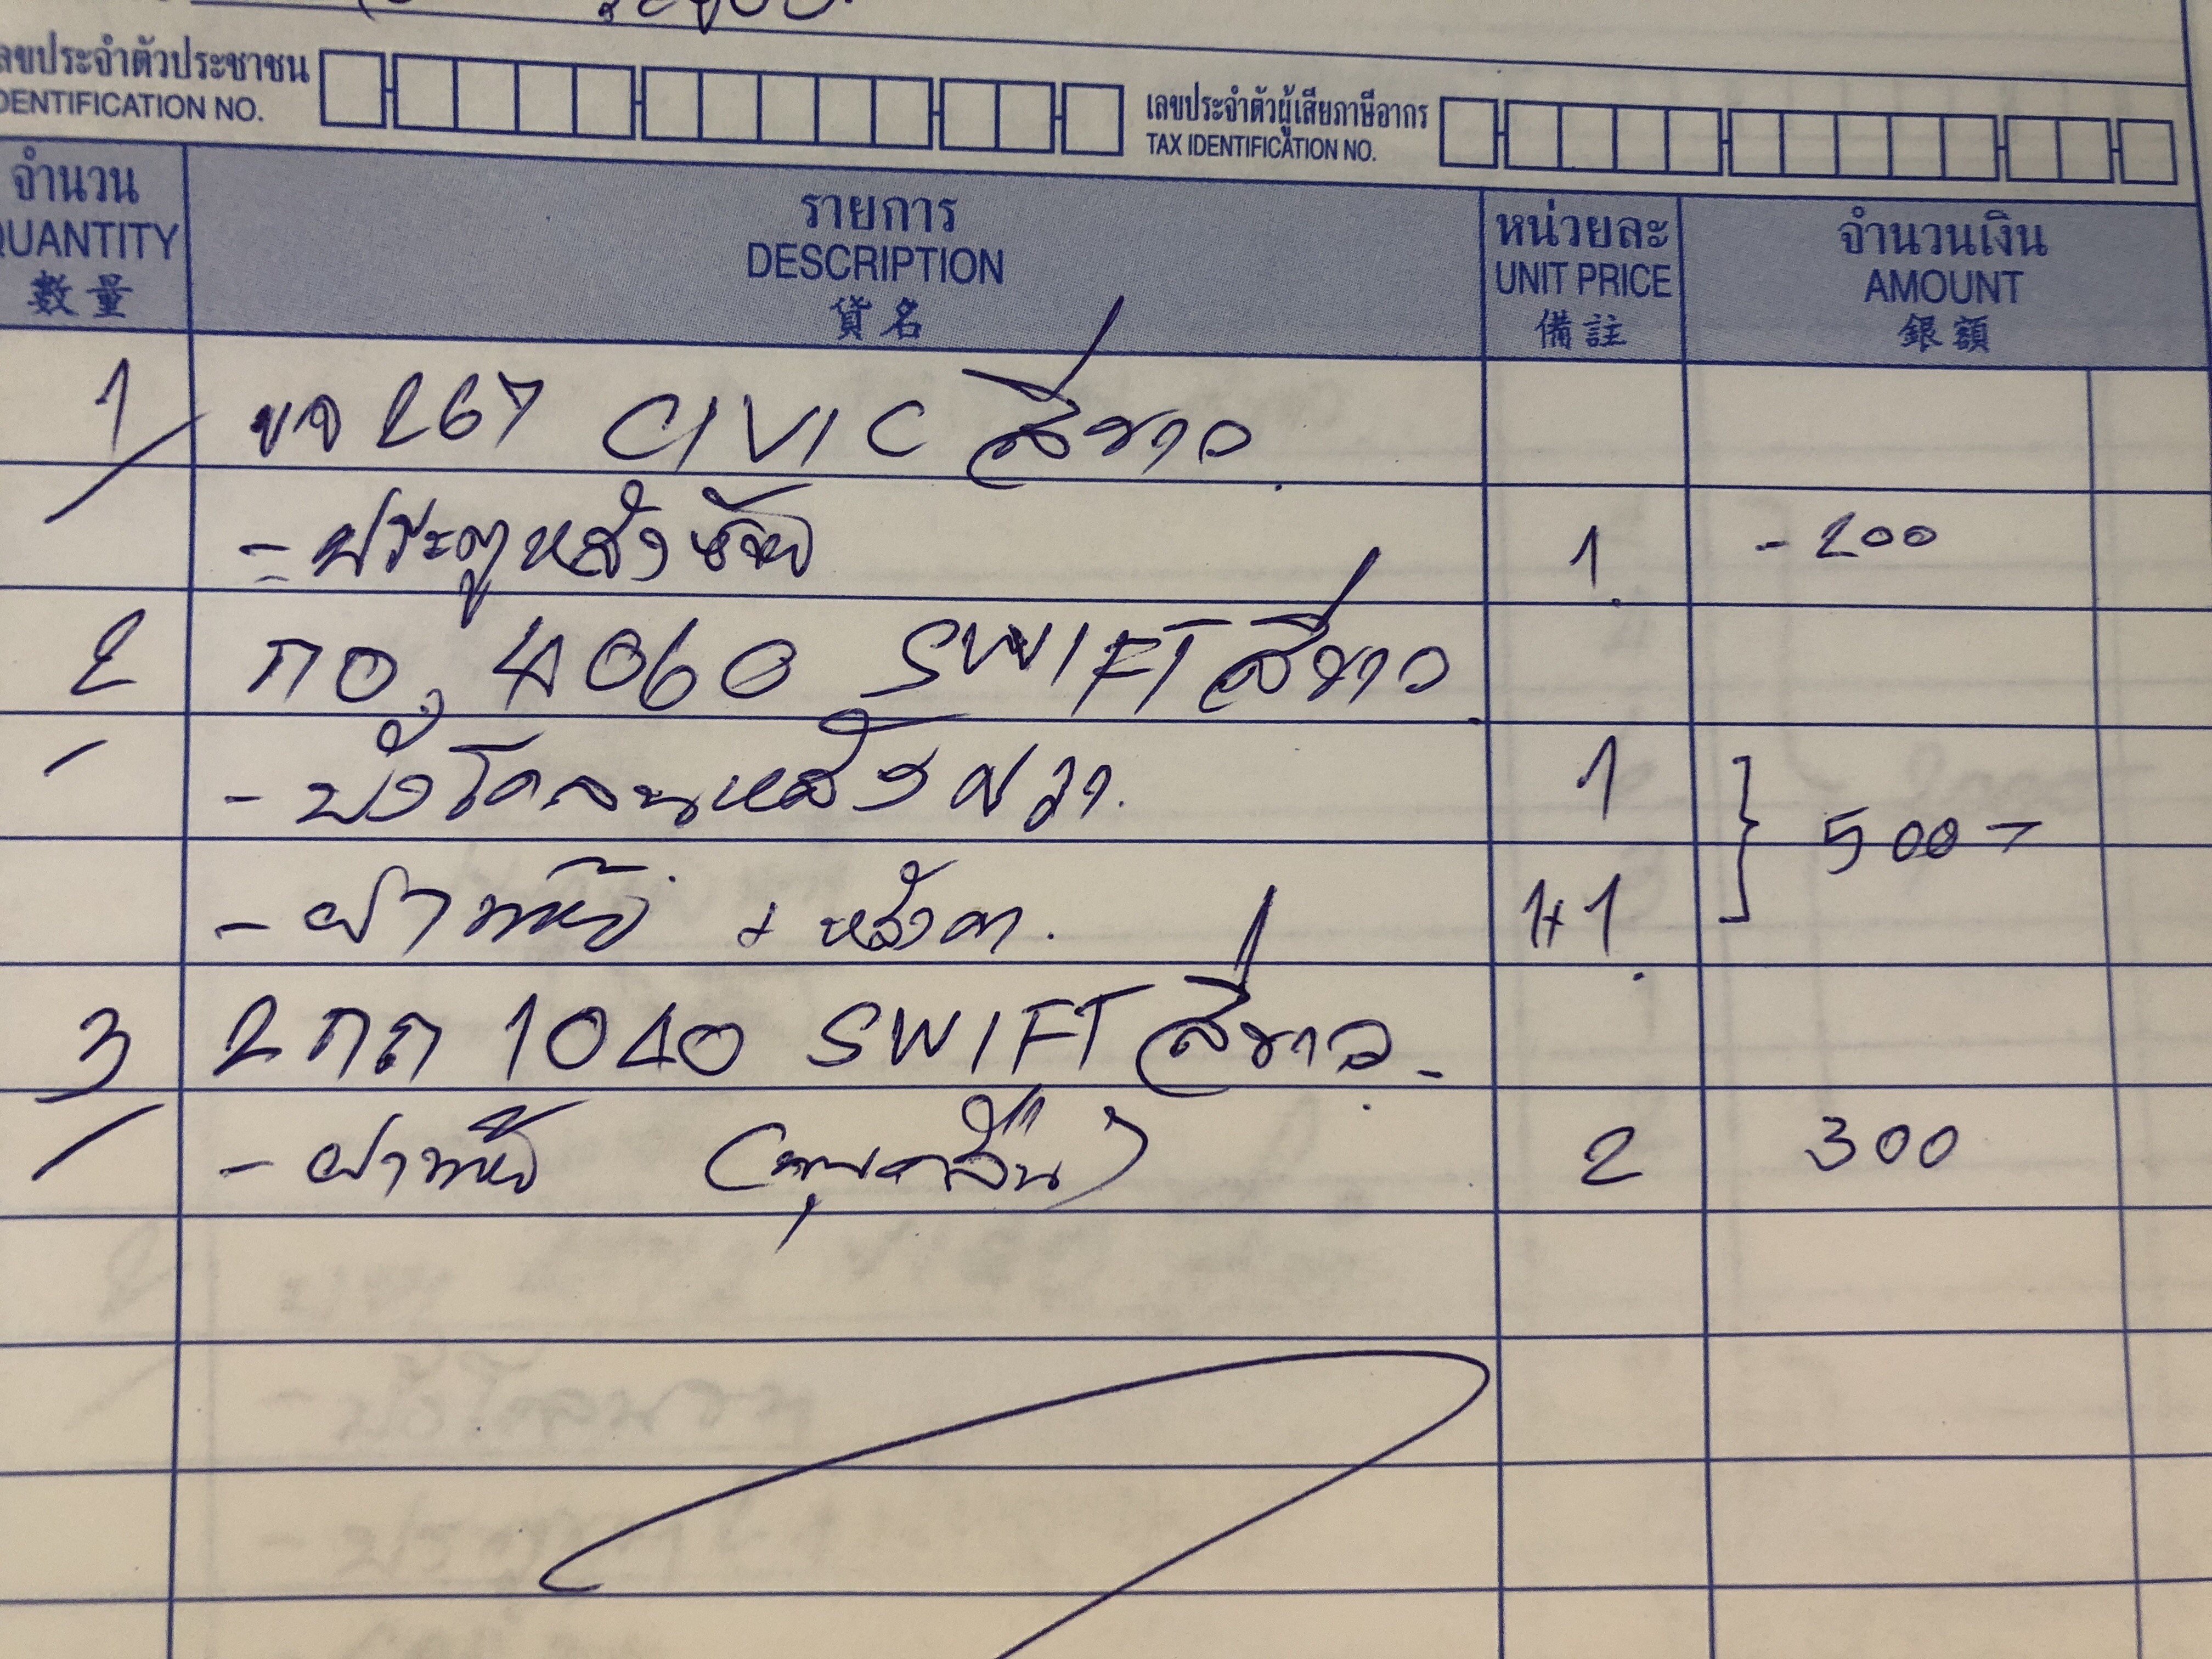 เลขประจำตัวประชาชน
IDENTIFICATION NO.
เลขประจำตัวผู้เสียภาษีอากร
TAX IDENTIFICATION NO.
จำนวน รายการ หน่วยละ จำนวนเงิน
QUANTITY DESCRIPTION UNIT PRICE AMOUNT
數量 貨名 備註 銀額
1 ขจ 267 CIVIC สีขาว
- ประตูหลังซ้าย 1 - 200
2 กอ. 4060 SWIFT สีขาว
- บังโคลนหลังขวา. 1
500 -
- ฝาท้าย + หลังคา. 1+1
3 2 กก 1040 SWIFT สีขาว -
- ฝาท้าย 2 300